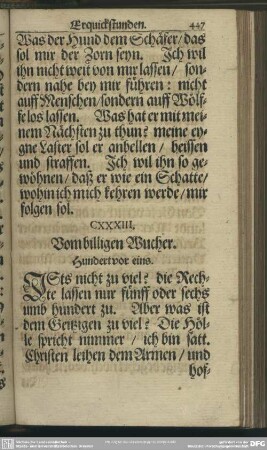 Erquickstunden. 447
Was der Hund dem Schäfer/ das
sol mir der Zorn seyn. Ich wil
ihn nicht weit von mir lassen/ son-
dern nahe bey mir führen: nicht
auff Menschen/ sondern auff Wölf-
fe los lassen. Was hat er mit mei-
nem Nächsten zu thun? meine ey-
gne Laster sol er anbellen/ beissen
und straffen. Ich wil ihn so ge-
wöhnen/ daß er wie ein Schatte/
wohin ich mich kehren werde/ mir
folgen sol.
CXXXIII.
Vom billigen Wucher.
Hundert vor eins.
ISts nicht zu viel? die Rech-
te lassen nur fünff oder sechs
umb hundert zu. Aber was ist
dem Geitzigen zu viel? Die Höl-
le spricht nimmer/ ich bin satt.
Christen leihen dem Armen/ und
hof-